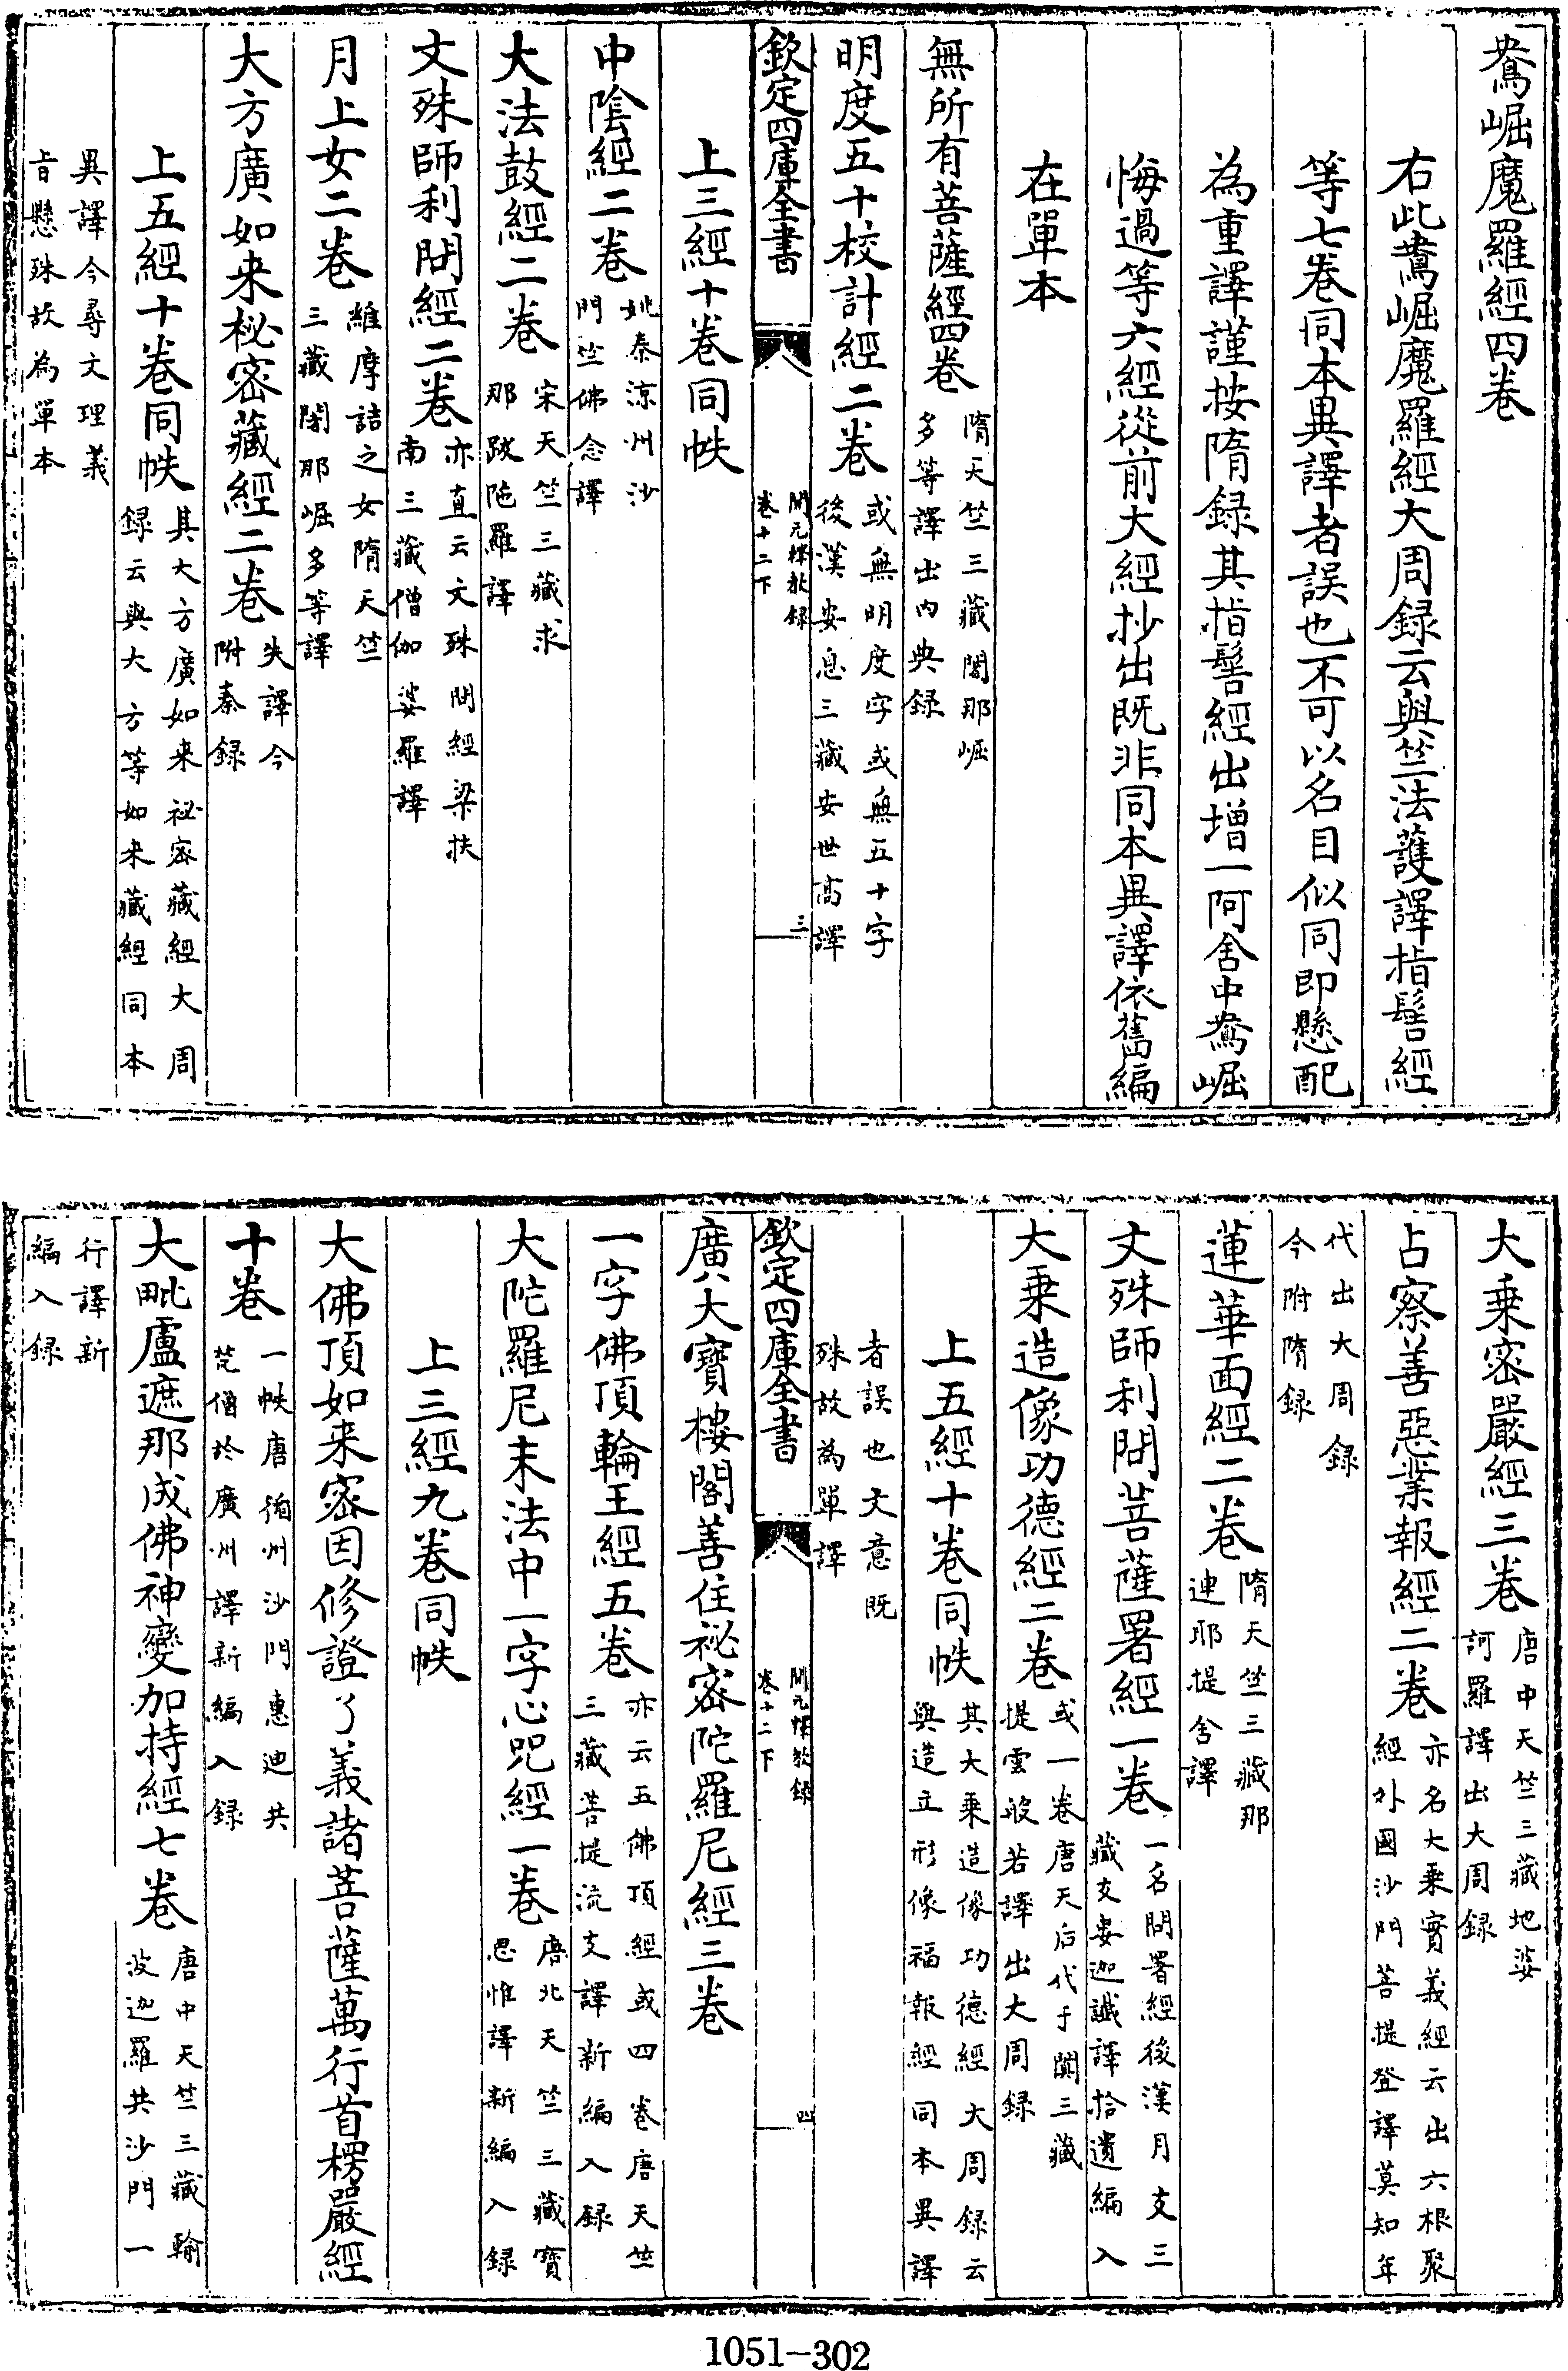 鴦崛魔羅經四卷
右此鴦崛魔羅經大周録云與竺法護譯指髻經
等七卷同本異譯者誤也不可以名目似同即懸配
為重譯謹按隋録其指髻經出增一阿含中鴦崛
悔過等六經從前大經抄出既非同本異譯依舊編
在單本
無所有菩薩經四卷
隋天竺三藏闍那崛
多等譯出内典録
明度五十校計經二卷
或無明度字或無五十字
後漢安息三藏安世高譯
欽定四庫全書
開元釋教録
卷十二下
三
上三經十卷同帙
中陰經二卷
姚秦涼州沙
門竺佛念譯
大法鼓經二卷
宋天竺三藏求
那跋陁羅譯
文殊師利問經二卷
亦直云文殊問經梁扶
南三藏僧伽婆羅譯
月上女二卷
維摩詰之女隋天竺
三藏闍那崛多等譯
大方廣如来秘密藏經二卷
失譯今
附秦録
上五經十卷同帙
其大方廣如来祕密藏經大周
録云與大方等如来藏經同本
異譯今尋文理義
旨懸殊故為單本
大乗密嚴經三卷
唐中天竺三藏地婆
訶羅譯出大周録
占察善惡業報經二卷
亦名大乗實義經云出六根聚
經外國沙門菩提登譯莫知年
代出大周録
今附隋録
蓮華面經二卷
隋天竺三藏那
連耶提舍譯
文殊師利問菩薩署經一卷
一名問署經後漢月支三
藏支婁迦讖譯拾遺編入
大乗造像功德經二卷
或一卷唐天后代于闐三藏
提雲般若譯出大周録
上五經十卷同帙
其大乗造像功德經大周録云
與造立形像福報經同本異譯
者誤也文意既
殊故為單譯
欽定四庫全書
開元釋教録
卷十二下
四
廣大寳樓閣善住祕密陀羅尼經三卷
一字佛頂輪王經五卷
亦云五佛頂經或四卷唐天竺
三藏菩提流支譯新編入録
大陀羅尼末法中一字心呪經一卷
唐北天竺三藏寳
思惟譯新編入録
上三經九卷同帙
大佛頂如来密因修證了義諸菩薩萬行首楞嚴經
十卷
一帙唐循州沙門惠迪共
梵僧於廣州譯新編入録
大毗盧遮那成佛神變加持經七卷
唐中天竺三藏輸
波迦羅共沙門一
行譯新
編入録
1051-302